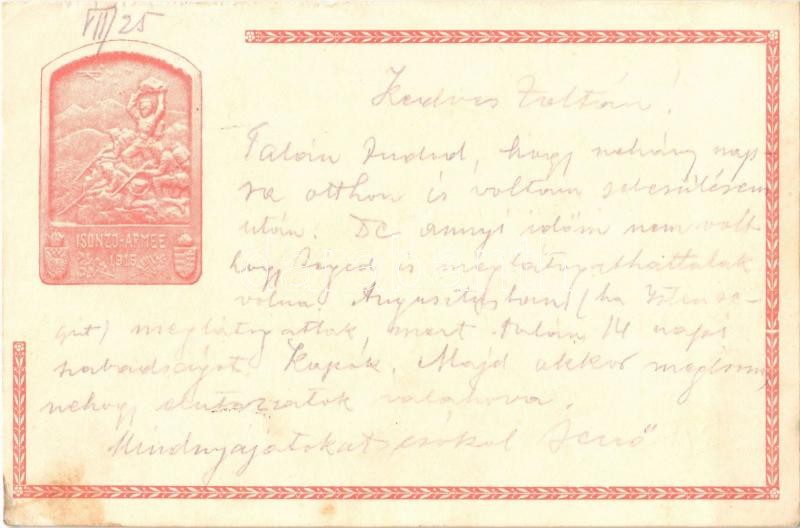 VII/25
ISONZO-ARMEE
1915
Kedves Zoltán!
Talán tudod, hogy néhány nap-
ra otthon is voltam sebesülésem
után. De annyi időm nem volt
hogy Téged is meglátogathattalak
volna. Augusztusban (ha Isten se-
gít) meglátogatlak, mert talán 14 napi
szabadságot kapok. Majd akkor
nehogy elutazzatok valahova.
Mindnyájatokat csókol Jenő